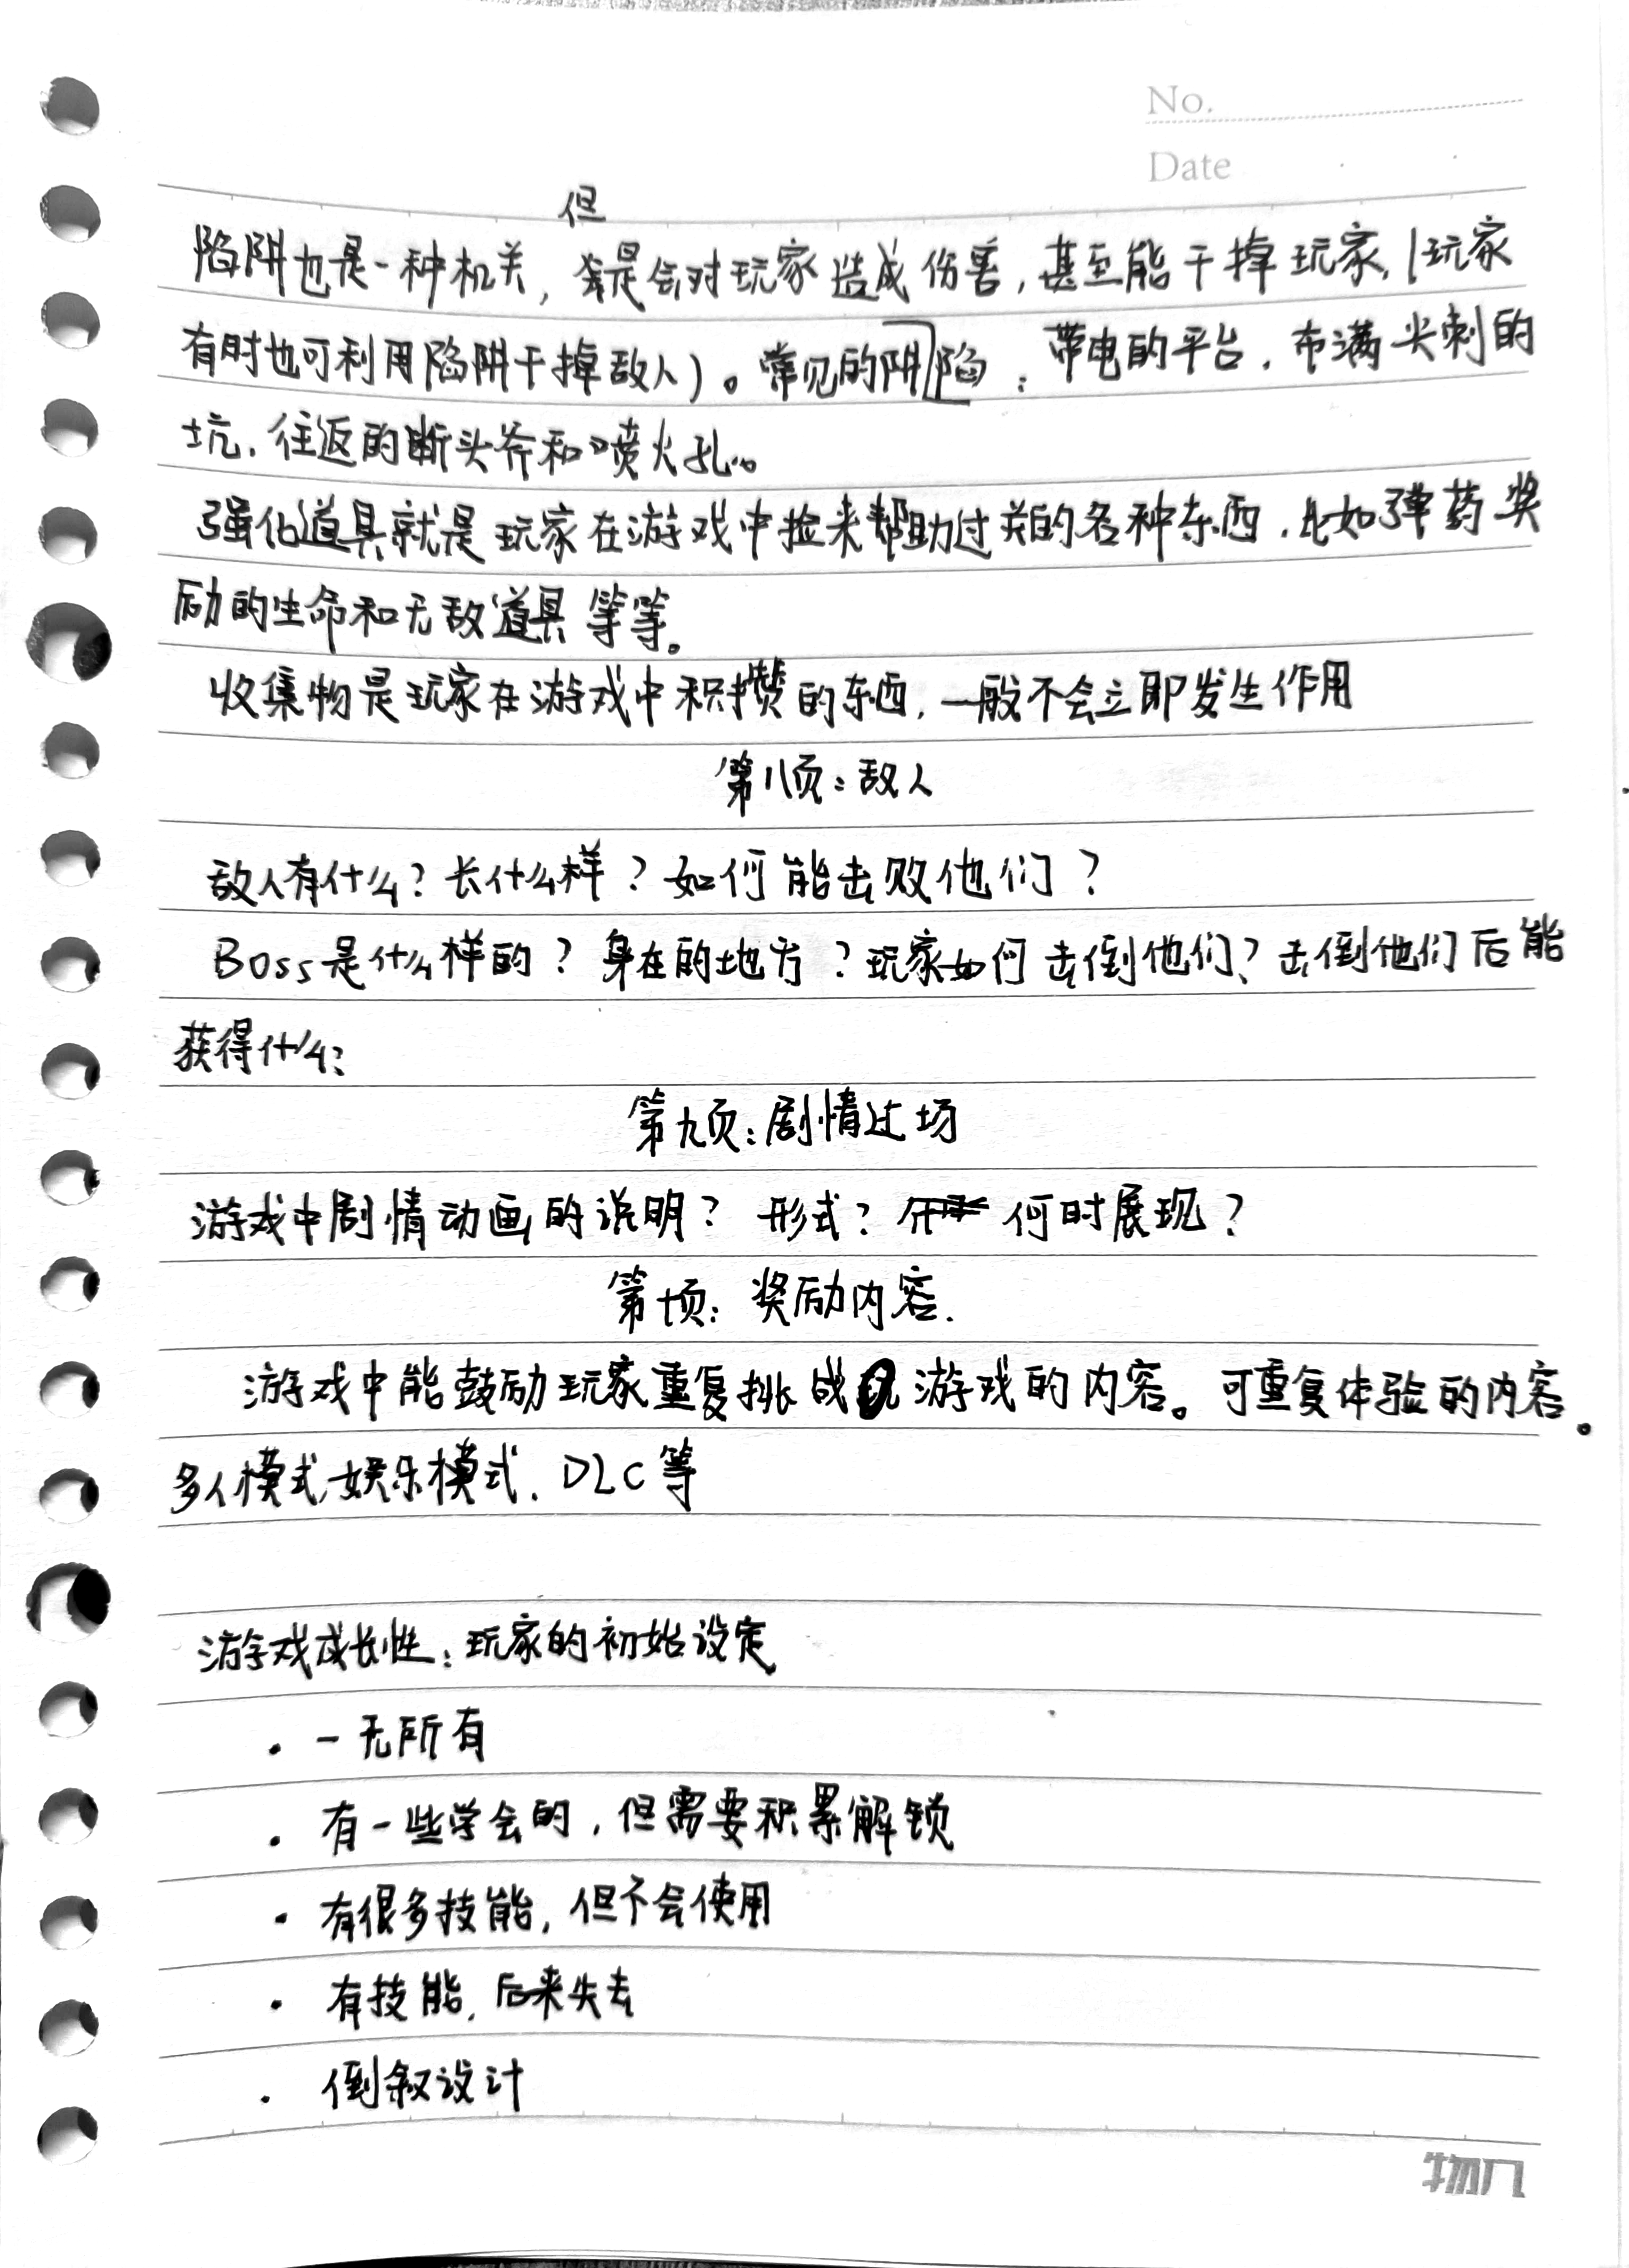 No.
Date
但
陷阱也是一种机关，是会对玩家造成伤害，甚至能干掉玩家，(玩家
有时也可利用陷阱干掉敌人)。常见的阱陷：带电的平台，布满尖刺的
坑，往返的断头斧和喷火孔。
强化道具就是玩家在游戏中捡来帮助过关的各种东西，比如弹药奖
励的生命和无敌道具等等。
收集物是玩家在游戏中积攒的东西，一般不会立即发生作用
第八页：敌人
敌人有什么？长什么样？如何能击败他们？
Boss是什么样的？身在的地方？玩家如何击倒他们？击倒他们后能
获得什么？
第九页：剧情过场
游戏中剧情动画的说明？形式？何时展现？
第十页：奖励内容.
游戏中能鼓励玩家重复挑战游戏的内容。可重复体验的内容。
多人模式,娱乐模式.DLC等
游戏成长性：玩家的初始设定
·一无所有
·有一些学会的，但需要积累解锁
·有很多技能，但不会使用
·有技能，后来失去
·倒叙设计
物几